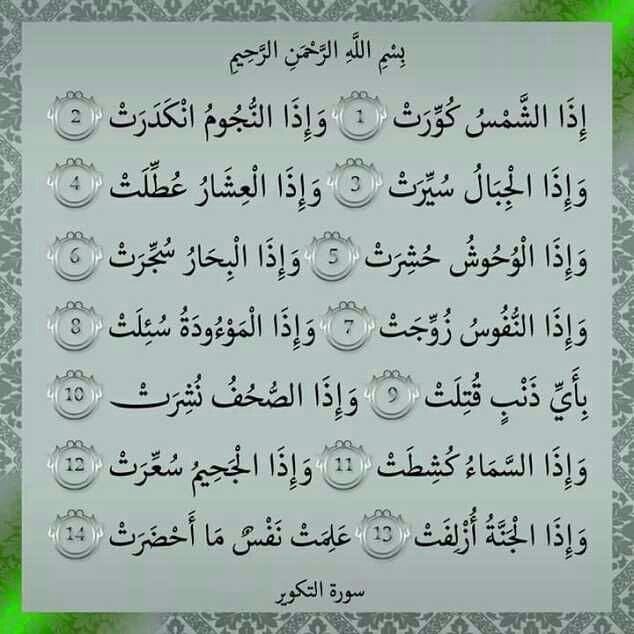 بِسْمِ اللَّهِ الرَّحْمَنِ الرَّحِيمِ
إِذَا الشَّمْسُ كُوِّرَتْ 1 وَإِذَا النُّجُومُ انْكَدَرَتْ 2
وَإِذَا الْجِبَالُ سُيِّرَتْ 3 وَإِذَا الْعِشَارُ عُطِّلَتْ 4
وَإِذَا الْوُحُوشُ حُشِرَتْ 5 وَإِذَا الْبِحَارُ سُجِّرَتْ 6
وَإِذَا النُّفُوسُ زُوِّجَتْ 7 وَإِذَا الْمَوْءُودَةُ سُئِلَتْ 8
بِأَيِّ ذَنْبٍ قُتِلَتْ 9 وَإِذَا الصُّحُفُ نُشِرَتْ 10
وَإِذَا السَّمَاءُ كُشِطَتْ 11 وَإِذَا الْجَحِيمُ سُعِّرَتْ 12
وَإِذَا الْجَنَّةُ أُزْلِفَتْ 13 عَلِمَتْ نَفْسٌ مَا أَحْضَرَتْ 14
سورة التكوير